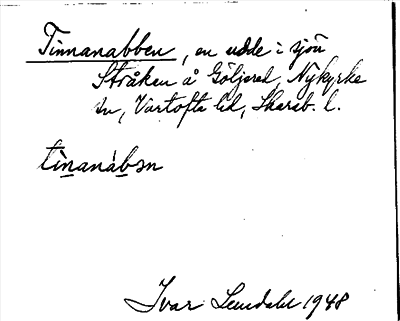 Tinnanabben, en udde i sjön
Stråken å Göljered, Nykyrke
sn, Vartofta hd, Skarab. l.
tìnanábən
Ivar Lundahl 1948